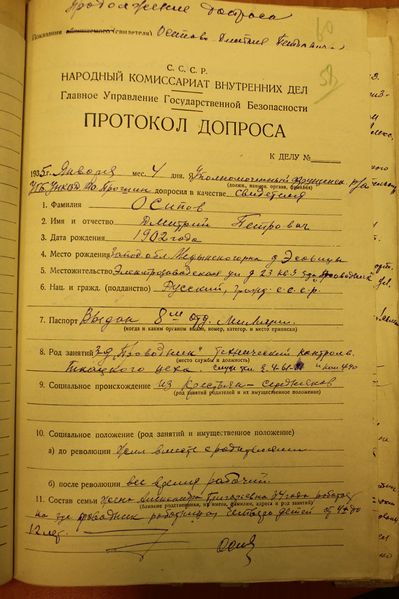 Продолжение допроса
Показания (свидетеля) Осипова Дмитрия Петровича
60
58
С. С. С. Р.
НАРОДНЫЙ КОМИССАРИАТ ВНУТРЕННИХ ДЕЛ
Главное Управление Государственной Безопасности
ПРОТОКОЛ ДОПРОСА
К ДЕЛУ №
1935 г. Января мес. 4 дня. Я, Уполномоченный
(должн., наимен. органа, фамилия)
допросил в качестве свидетеля
1. Фамилия Осипов
2. Имя и отчество Дмитрий Петрович
3. Дата рождения 1902 года
4. Место рождения
5. Местожительство Электрозаводская ул д 23
6. Нац. и гражд. (подданство) Русский, гражд. С.С.С.Р.
7. Паспорт Выдан 8ым отд. Милиции.
(когда и каким органом выдан, номер, категор. и место приписки)
8. Род занятий З-д "Проводник" технический контроль
(место службы и должность)
Ткацкого цеха.
9. Социальное происхождение из Крестьян - середняков
(род занятий родителей и их имущественное положение)
10. Социальное положение (род занятий и имущественное положение)
а) до революции Жил вместе с родителями
б) после революции все время рабочий
11. Состав семьи жена Александра Григорьевна 34 года работает
(близкие родственники, их имена, фамилии, адреса и род занятий)
на з-де Проводник работницей детей от
12 лет.